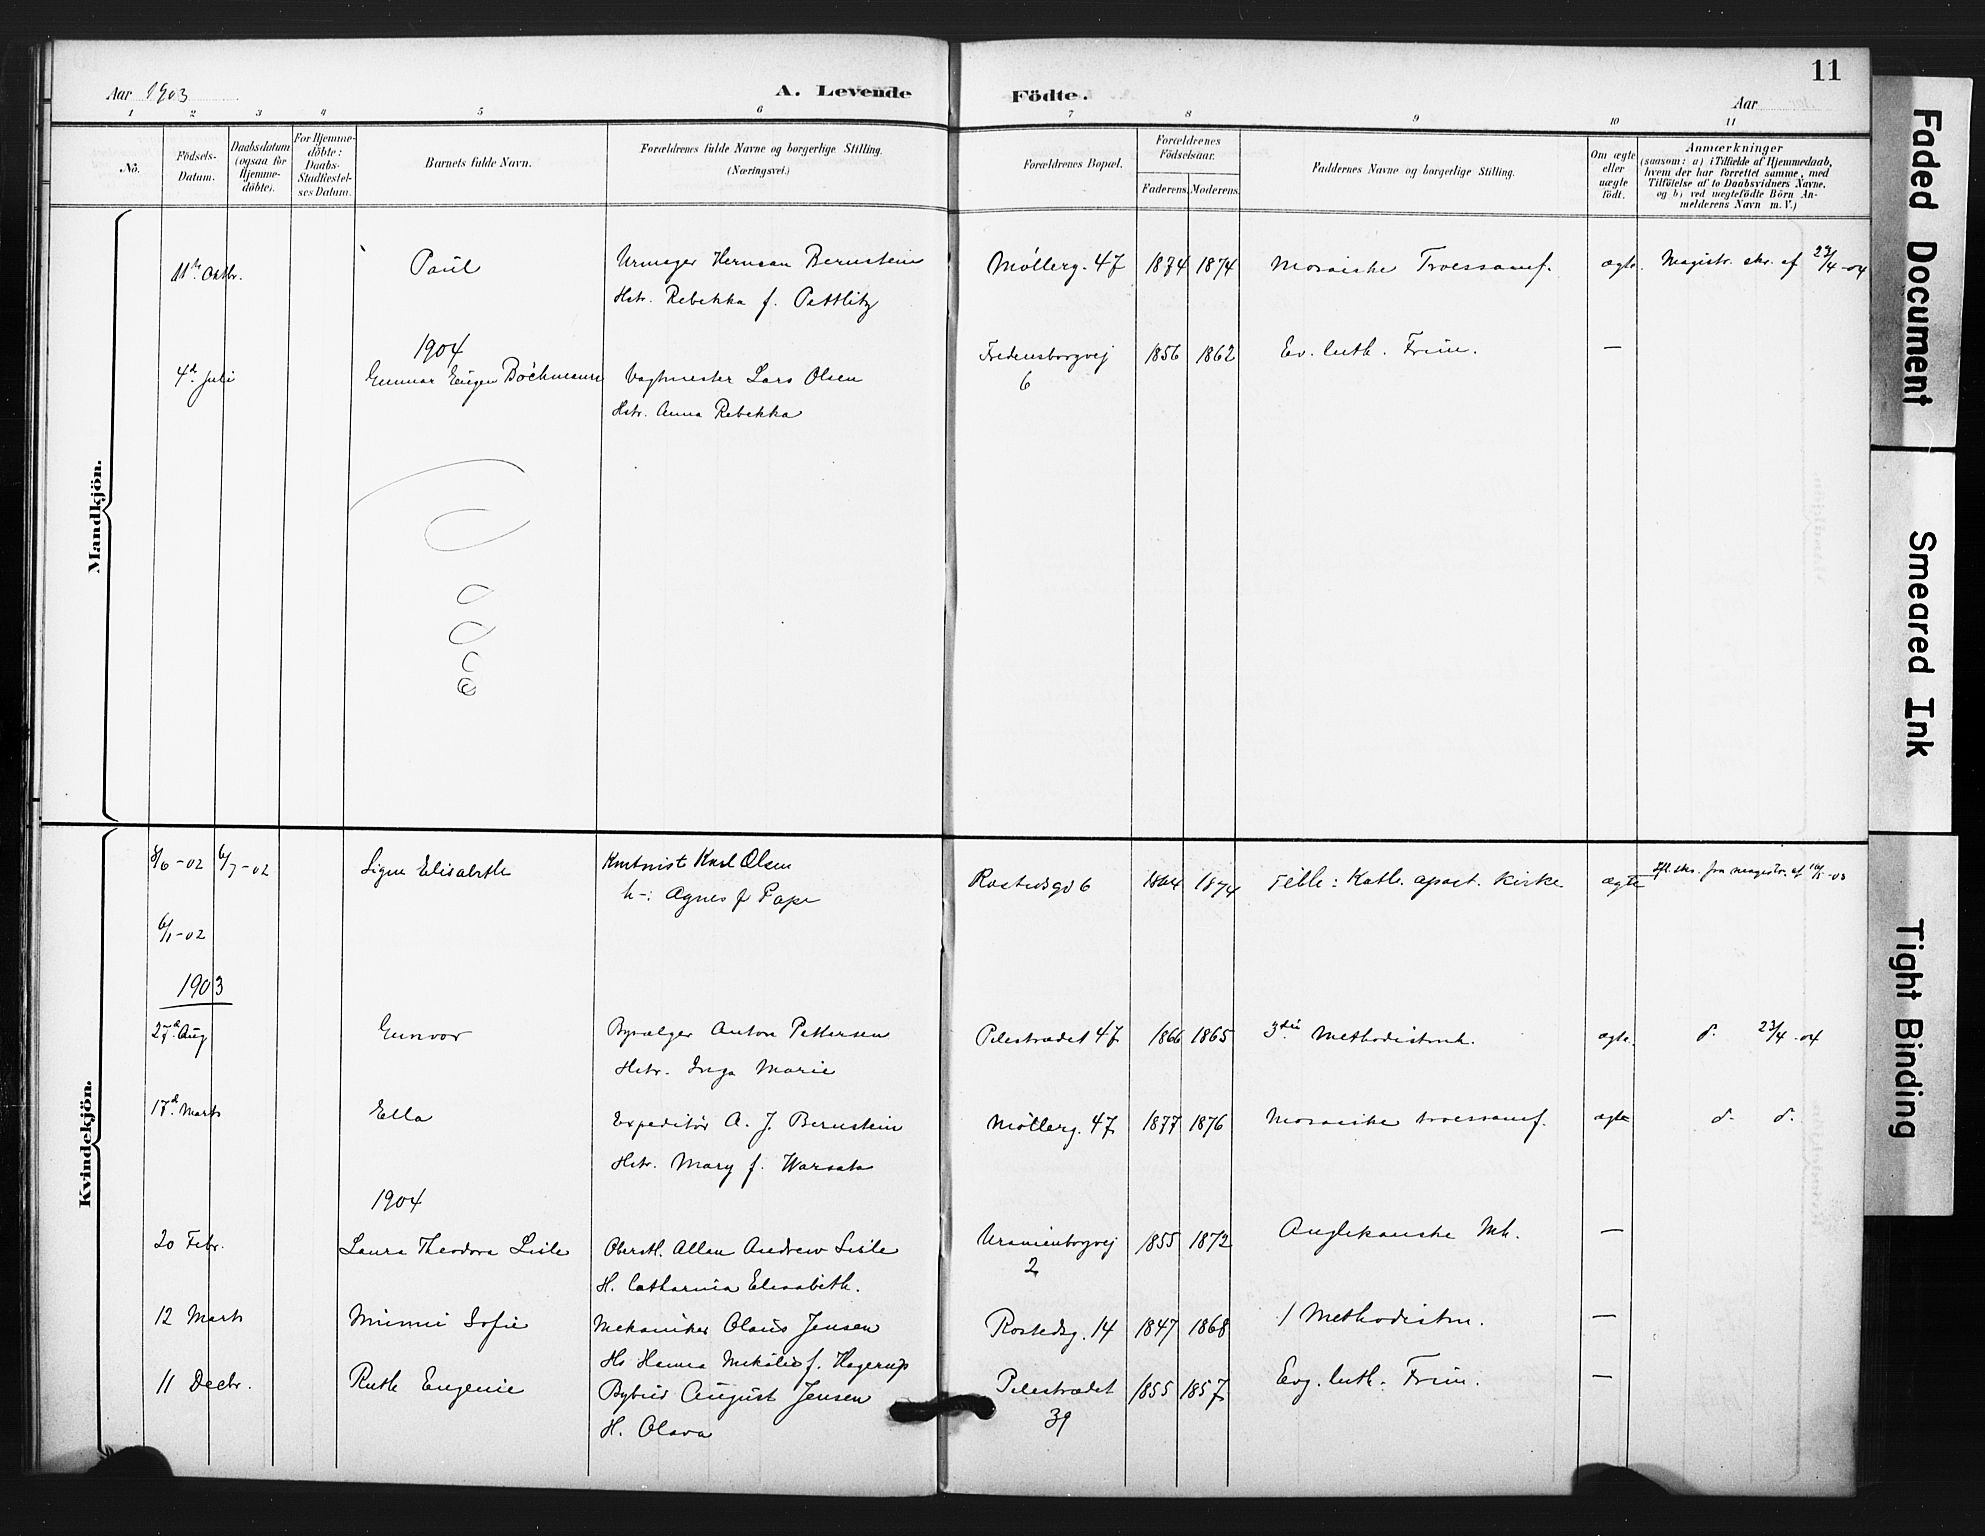 Aar 1903
A. Levende
Födte.
Aar
11
1 2 3 4 5 6 7 8 9 10 11
No.
Födsels-
Datum.
Daabsdatum
(ogsaa for
Hjemme-
döbte).
For Hjemme-
döbte:
Daabs-
Stadfæstel-
ses Datum.
Barnets fulde Navn.
Forældrenes fulde Navne og borgerlige Stilling.
(Næringsvei.)
Forældrenes Bopæl.
Forældrenes
Födselsaar.
Faderens.
Moderens.
Faddernes Navne og borgerlige Stilling.
Om ægte
eller
uægte
födt.
Anmærkninger
(saasom: a) i Tilfælde af Hjemmedaab,
hvem der har forrettet samme, med
Tilföielse af to Daabsvidners Navne.
og b) ved uægtefödte Börn An-
melderens Navn m. V.)
Mandkjön.
11te Oktbr. Paul Urmager Herman Bernstein Møllerg. 47 1874 1874 Mosaiske Troessamf. ægte. Magistr. skr. af 23/4-04
Hstr. Rebekka f. Pattlitz
1904
4d Juli Gunnar Eugen Böckmann Vagtmester Lars Olsen Fredensborgvej 1856 1862 Ev. luth. Frim. —
6
Hstr. Anna Rebekka
Kvindekjön.
8/6-02 6/7-02 Signe Elisabeth Kontorist Karl Olsen Rostedsgd 6 1864 1874 Feble: Kath. apost. Kirke ægte Ifl. skr. fra magistr. af 16/5-03
h-: Agnes f Pape
6/1-02
1903
27d Aug Gunvor Bysælger Anton Pettersen Pilestrædet 47 1866 1865 3die Methodistmh. ægte. d. 23/4-04
Hstr. Inga Marie
17d Marts Ella Expeditør A. J. Bernstein Møllerg. 47 1877 1876 Mosaiske troessamf. ægte d. d.
Hstr. Mary f. Warsata
1904
20 Febr. Laura Theodora Lisle Oberstl. Allan Andrew Lisle Uranienborgvej 1855 1872 Anglikanske Mh. —
2
H. Catharina Elisabeth.
12 Marts Minni Sofie Mekaniker Olaus Jensen Rostedsg. 14 1847 1868 1 Methodistm. —
Hs Hanna Mikalie f. Hagerup
11 Decbr. Ruth Eugenie Bybud August Jensen Pilestrædet 1855 1857 Evg. luth. Frim. —
39
H. Olava
Faded Document
Smeared Ink
Tight Binding